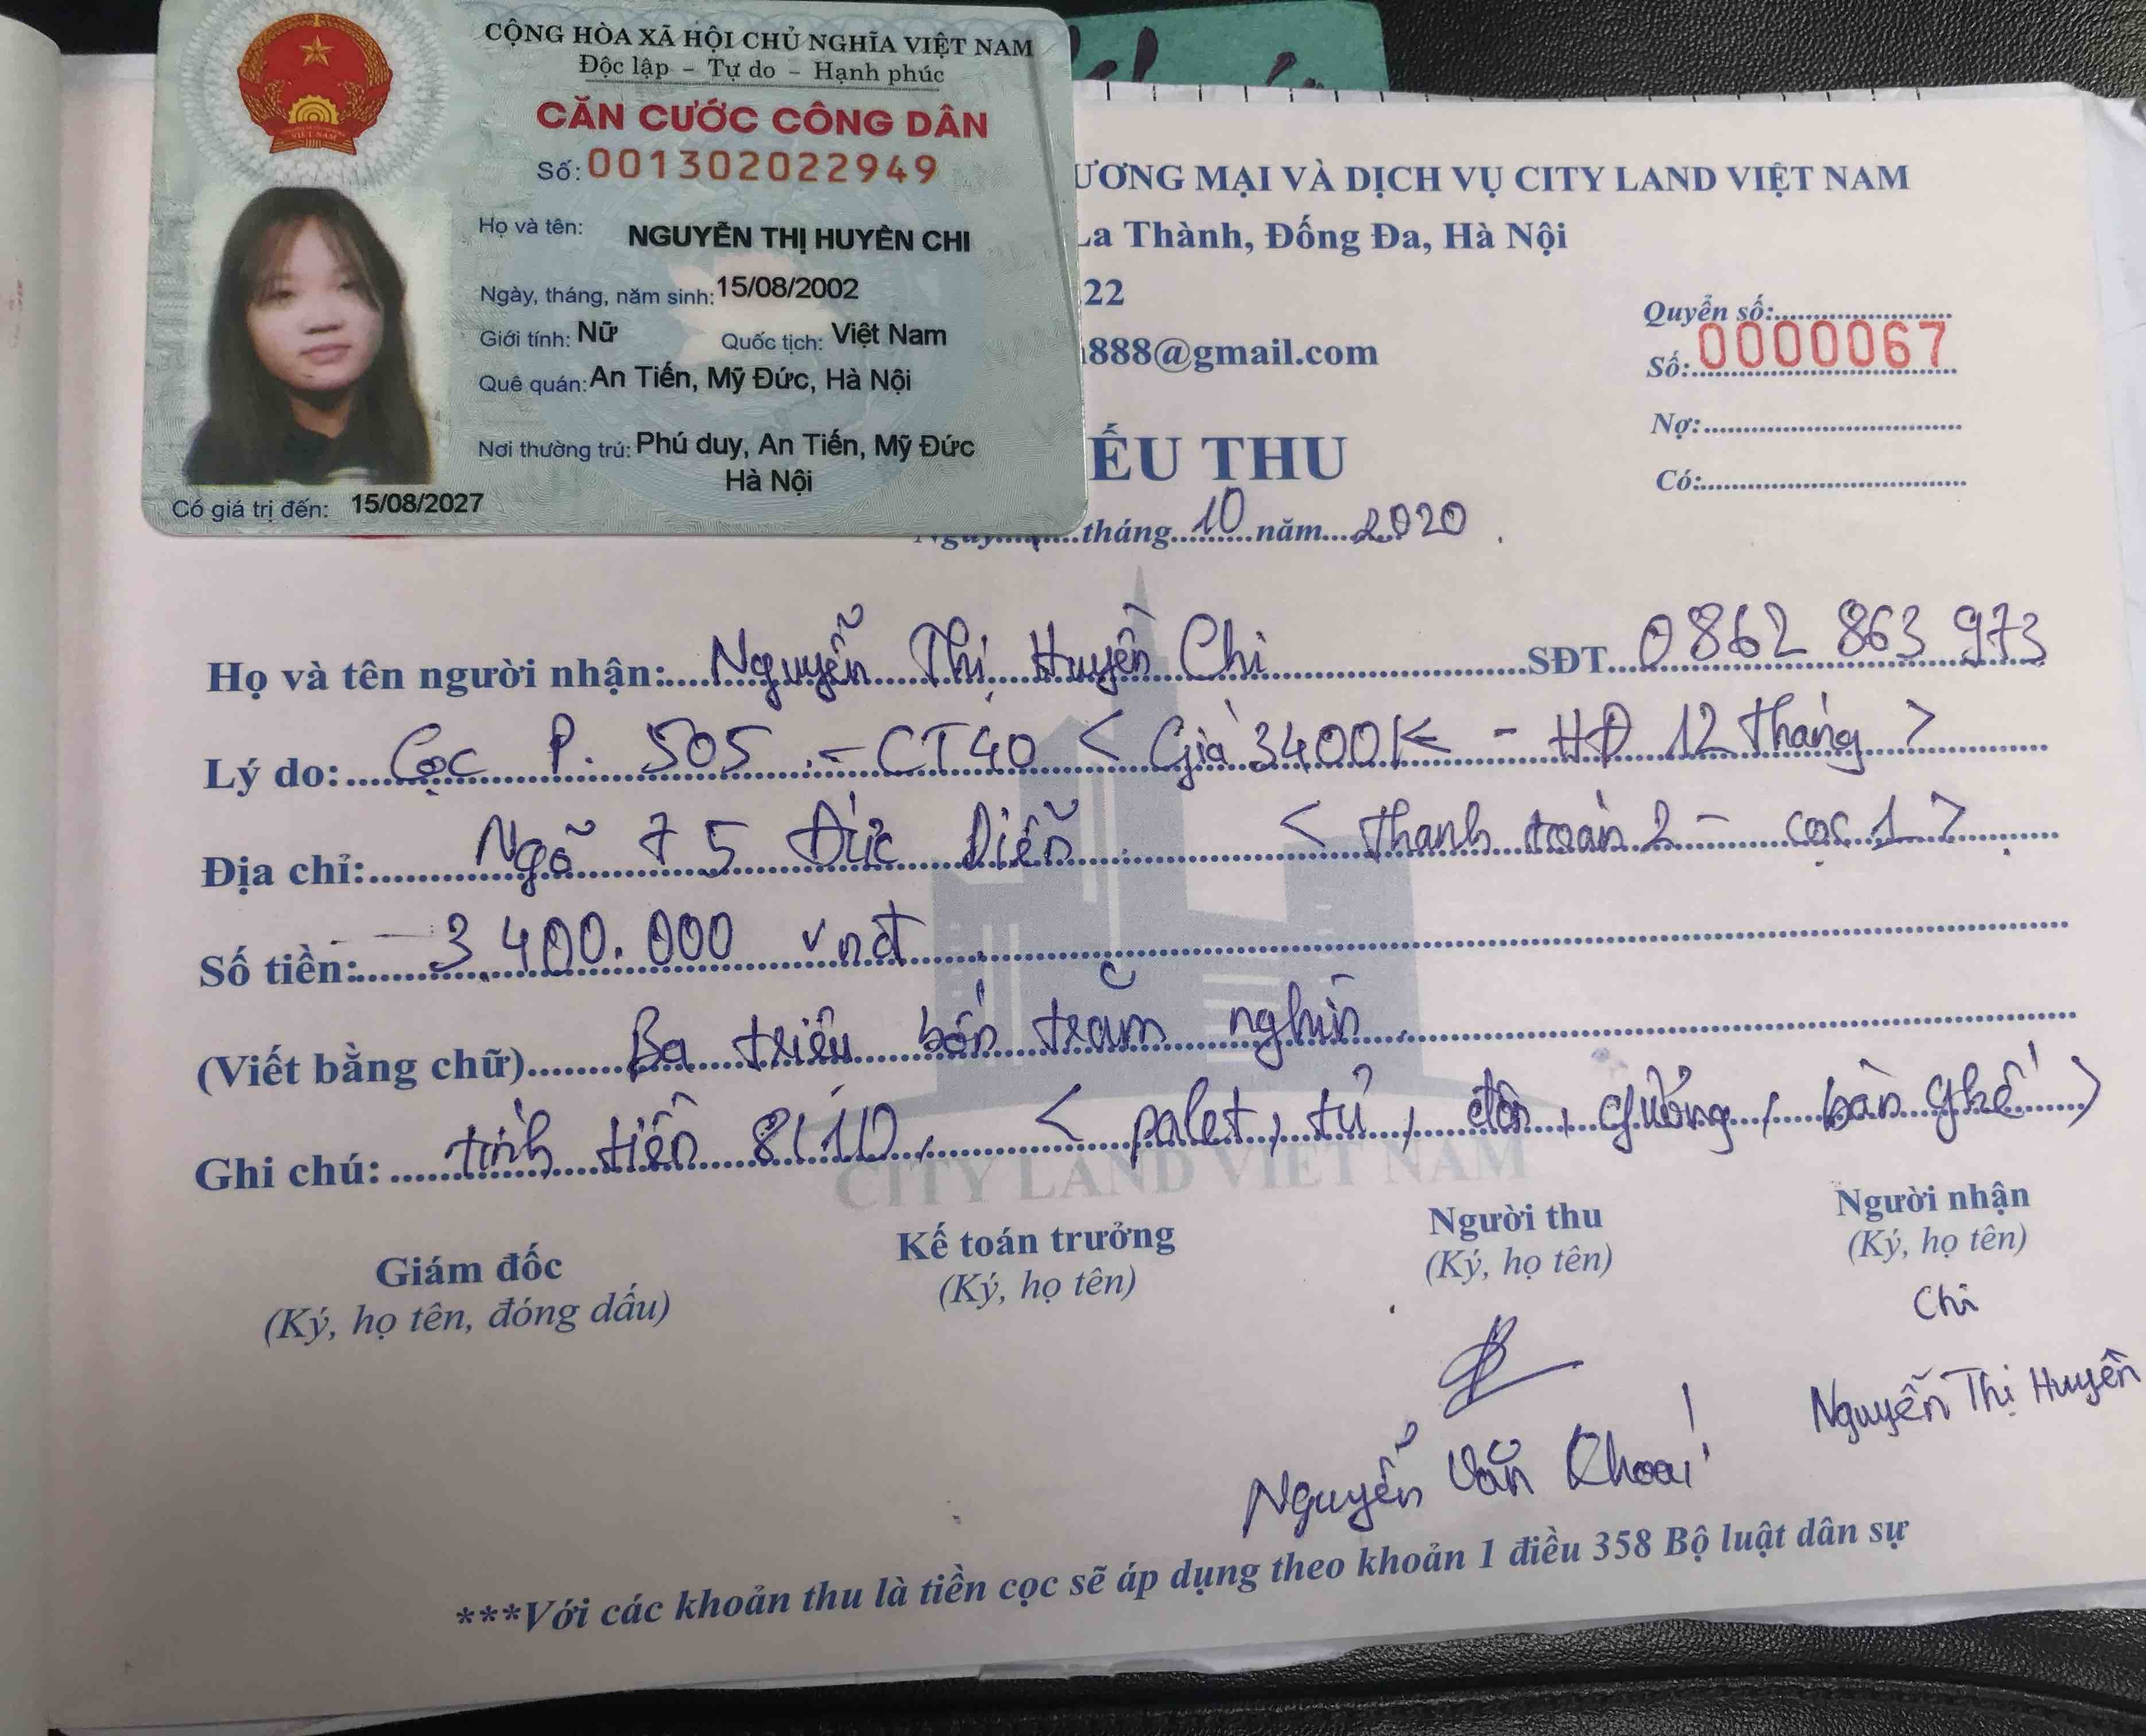 CỘNG HÒA XÃ HỘI CHỦ NGHĨA VIỆT NAM
Độc lập - Tự do - Hạnh phúc
CĂN CƯỚC CÔNG DÂN
Số: 001302022949
Họ và tên: NGUYỄN THỊ HUYỀN CHI
Ngày, tháng, năm sinh: 15/08/2002
Giới tính: Nữ Quốc tịch: Việt Nam
Quê quán: An Tiến, Mỹ Đức, Hà Nội
Nơi thường trú: Phú duy, An Tiến, Mỹ Đức
Hà Nội
Có giá trị đến: 15/08/2027
ƯƠNG MẠI VÀ DỊCH VỤ CITY LAND VIỆT NAM
La Thành, Đống Đa, Hà Nội
22
888@gmail.com
Quyển số:
Số: 0000067
Nợ:
Có:
ẾU THU
tháng 10 năm 2020
Họ và tên người nhận: Nguyễn Thị Huyền Chi SĐT 0862 863 973
Lý do: Cọc P. 505 - CT40 < Giá 3400K - HĐ 12 tháng >
Địa chỉ: Ngõ 75 Đức Diễn < thanh toán 2 - cọc 1 >
Số tiền: 3.400.000 vnđ
(Viết bằng chữ) Ba triệu bốn trăm nghìn
Ghi chú: tính tiền 8/10, < palet, tủ, đôn, gương, bàn ghế >
CITY LAND VIET NAM
Giám đốc
(Ký, họ tên, đóng dấu)
Kế toán trưởng
(Ký, họ tên)
Người thu
(Ký, họ tên)
Nguyễn Văn Khoai
Người nhận
(Ký, họ tên)
Chi
Nguyễn Thị Huyền
***Với các khoản thu là tiền cọc sẽ áp dụng theo khoản 1 điều 358 Bộ luật dân sự